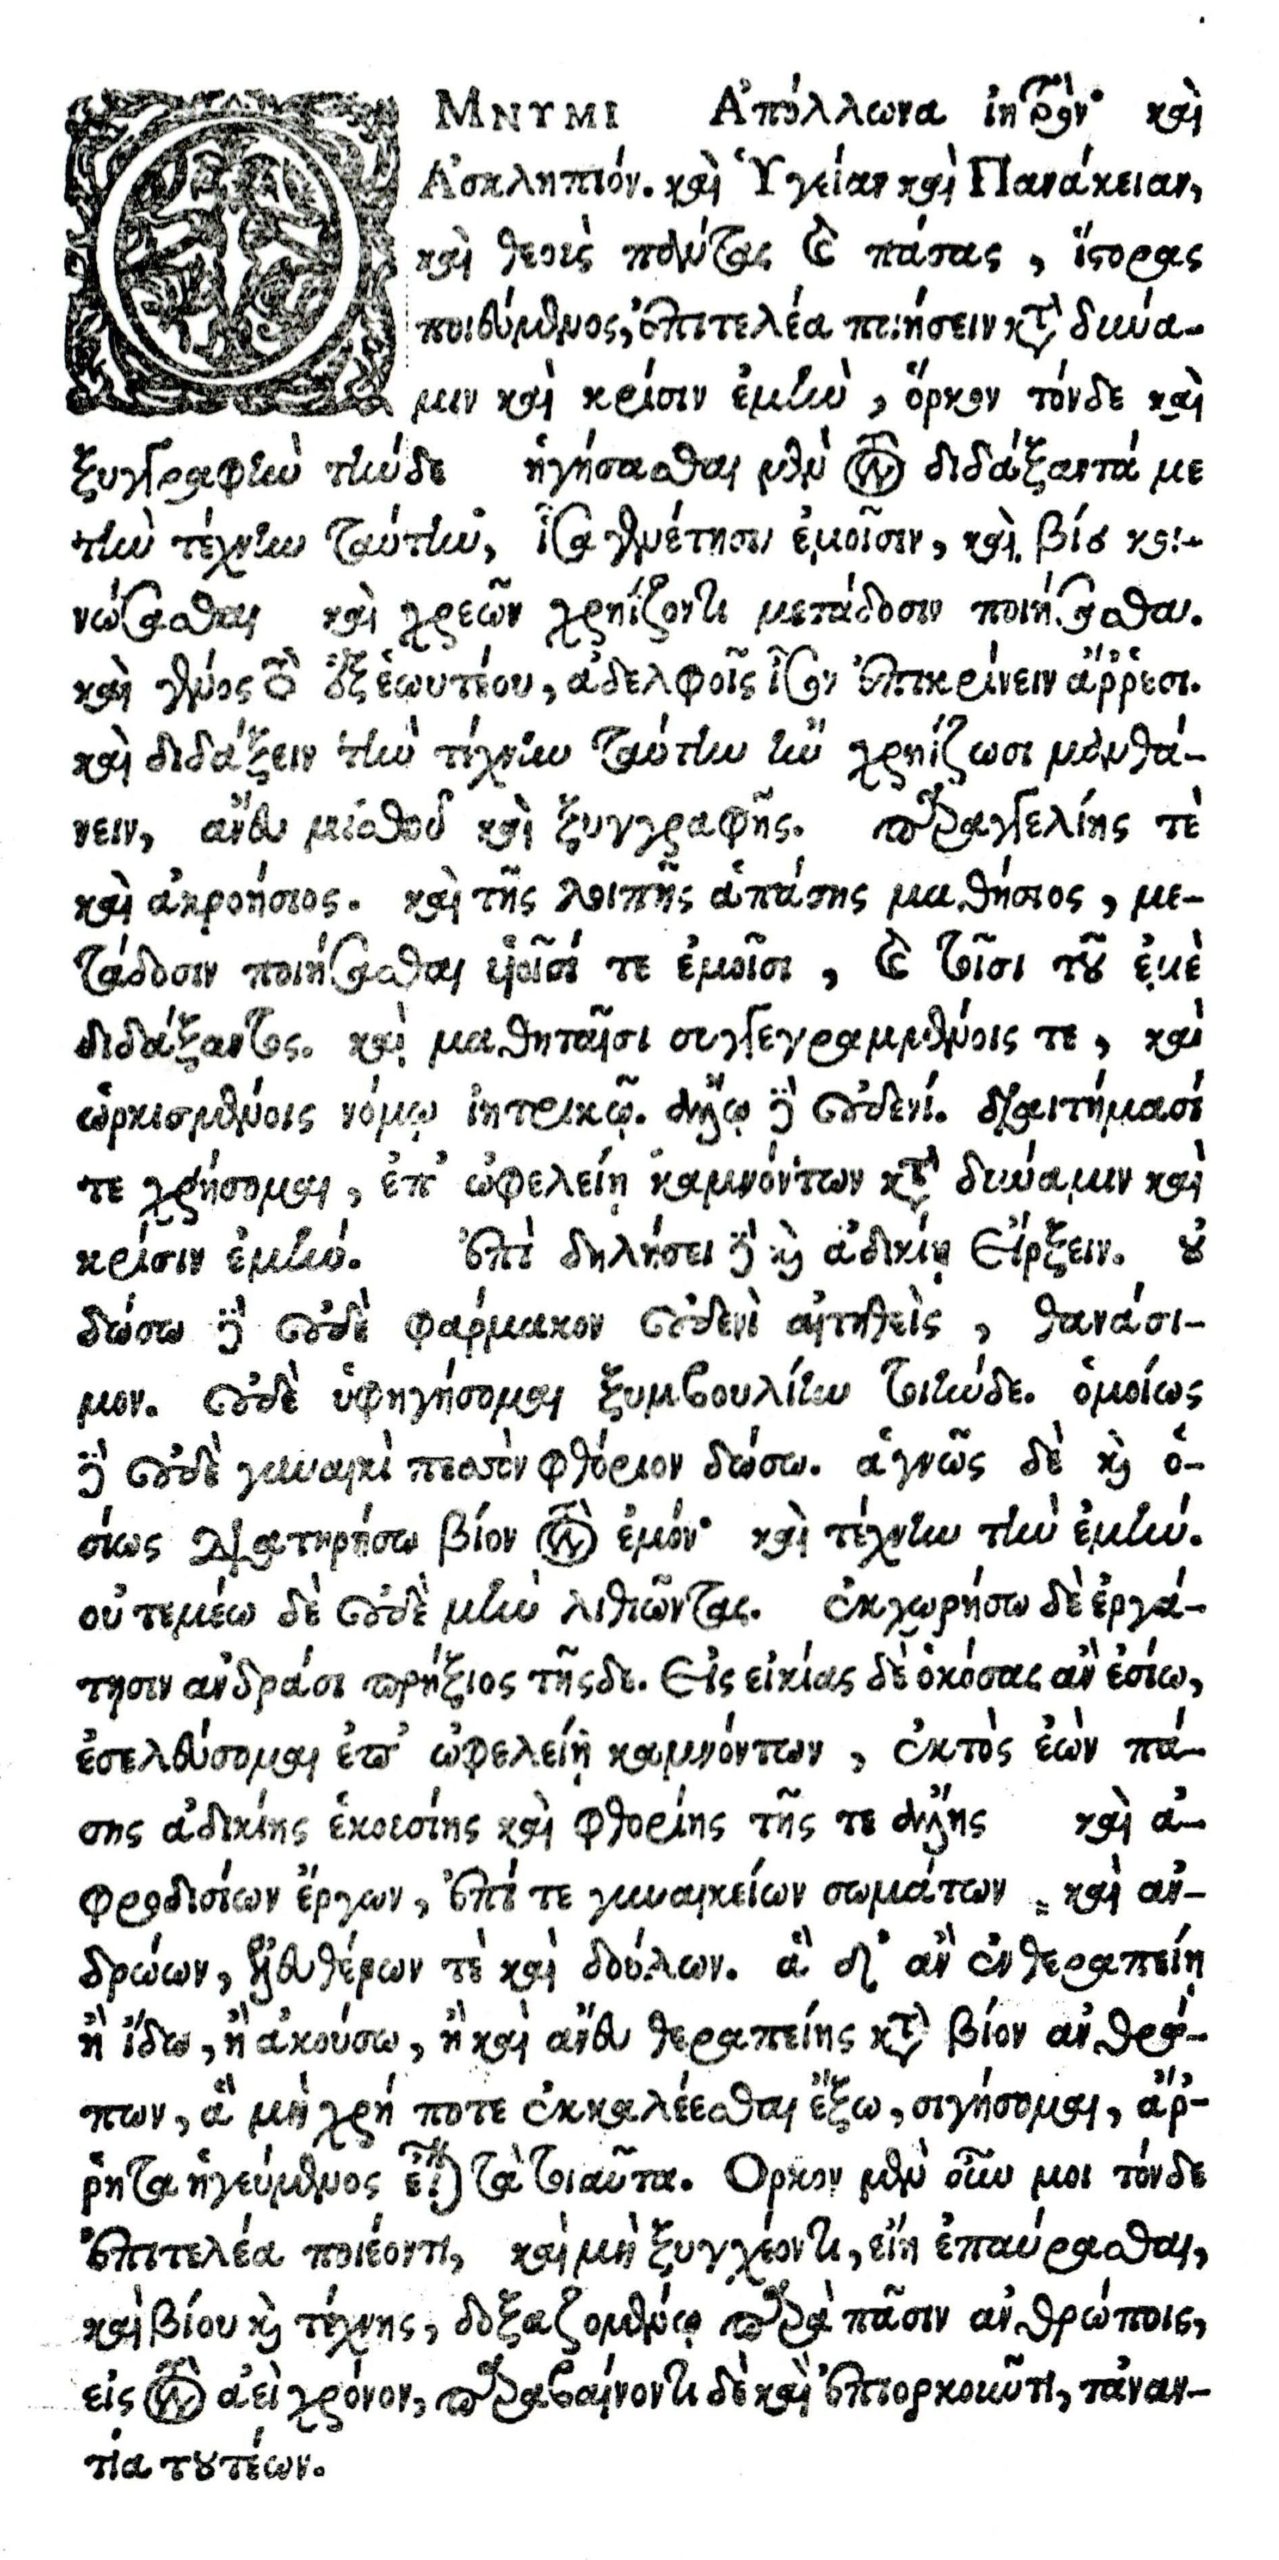 ΟΜΝΥΜΙ Ἀπόλλωνα ἰητρὸν· καὶ
Ἀσκληπιόν. καὶ Ὑγείαν καὶ Πανάκειαν,
καὶ θεοὺς πάντας καὶ πάσας, ἵστορας
ποιεύμενος, ἐπιτελέα ποιήσειν κατὰ δύνα-
μιν καὶ κρίσιν ἐμὴν, ὅρκον τόνδε καὶ
ξυγγραφὴν τήνδε ἡγήσασθαι μὲν τὸν διδάξαντά με
τὴν τέχνην ταύτην, ἶσα γενέτησιν ἐμοῖσιν, καὶ βίου κοι-
νώσασθαι καὶ χρεῶν χρηίζοντι μετάδοσιν ποιήσασθαι.
καὶ γένος τὸ ἐξ ἑωυτέου, ἀδελφοῖς ἶσον ἐπικρίνειν ἄῤῥεσι.
καὶ διδάξειν τὴν τέχνην ταύτην ἢν χρηίζωσι μανθά-
νειν, ἄνευ μισθοῦ καὶ ξυγγραφῆς. παραγγελίης τὲ
καὶ ἀκροήσιος. καὶ τῆς λοιπῆς ἁπάσης μαθήσιος, με-
τάδοσιν ποιήσασθαι υἱοῖσί τε ἐμοῖσι, καὶ τοῖσι τοῦ ἐμὲ
διδάξαντος. καὶ μαθηταῖσι συγγεγραμμένοις τε, καὶ
ὡρκισμένοις νόμῳ ἰητρικῷ. ἄλλῳ δὲ οὐδενί. διαιτήμασί
τε χρήσομαι, ἐπ' ὠφελείῃ καμνόντων κατὰ δύναμιν καὶ
κρίσιν ἐμήν. ἐπὶ δηλήσει δὲ καὶ ἀδικίῃ εἴρξειν. οὐ
δώσω δὲ οὐδὲ φάρμακον οὐδενὶ αἰτηθεὶς, θανάσι-
μον. οὐδὲ ὑφηγήσομαι ξυμβουλίην τοιήνδε. ὁμοίως
δὲ οὐδὲ γυναικὶ πεσσὸν φθόριον δώσω. ἁγνῶς δὲ καὶ ὁ-
σίως διατηρήσω βίον τὸν ἐμόν· καὶ τέχνην τὴν ἐμήν.
οὐ τεμέω δὲ οὐδὲ μὴν λιθιῶντας. ἐκχωρήσω δὲ ἐργά-
τησιν ἀνδράσι πρήξιος τῆςδε. Εἰς οἰκίας δὲ ὁκόσας ἂν ἐσίω,
ἐσελεύσομαι ἐπ' ὠφελείῃ καμνόντων, ἐκτὸς ἐὼν πά-
σης ἀδικίης ἑκουσίης καὶ φθορίης τῆς τε ἄλλης καὶ ἀ-
φροδισίων ἔργων, ἐπί τε γυναικείων σωμάτων καὶ ἀν-
δρώων, ἐλευθέρων τὲ καὶ δούλων. ἃ δ' ἂν ἐν θεραπείῃ
ἢ ἴδω, ἢ ἀκούσω, ἢ καὶ ἄνευ θεραπείης κατὰ βίον ἀνθρώ-
πων, ἃ μὴ χρή ποτε ἐκκαλέεσθαι ἔξω, σιγήσομαι, ἄῤ-
ῥητα ἡγεύμενος εἶναι τὰ τοιαῦτα. Ὅρκον μὲν οὖν μοι τόνδε
ἐπιτελέα ποιέοντι, καὶ μὴ ξυγχέοντι, εἴη ἐπαύρασθαι,
καὶ βίου καὶ τέχνης, δοξαζομένῳ παρὰ πᾶσιν ἀνθρώποις,
εἰς τὸν ἀεὶ χρόνον, παραβαίνοντι δὲ καὶ ἐπιορκοῦντι, τἀναν-
τία τουτέων.